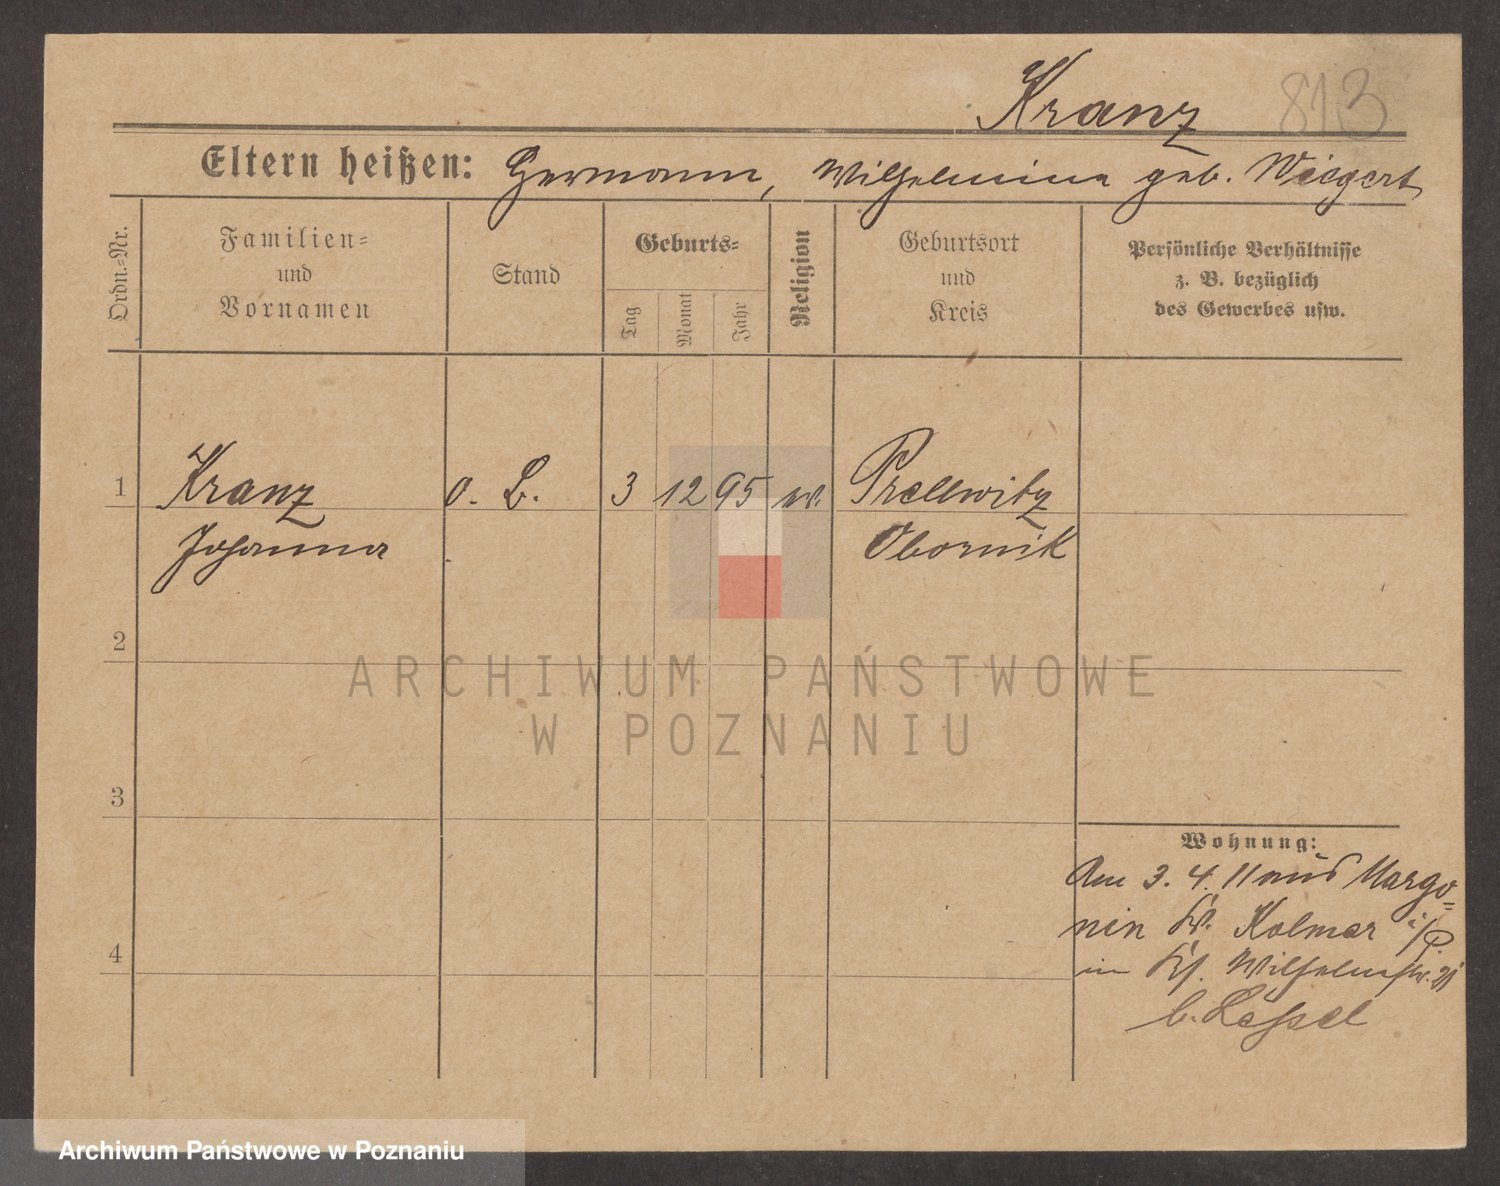 Kranz 813
Eltern heißen: Hermann, Wilhelmine geb. Wiegert
Ordn.-Nr.
Familien-
und
Vornamen
Stand
Geburts-
Tag
Monat
Jahr
Religion
Geburtsort
und
Kreis
Persönliche Verhältnisse
z. B. bezüglich
des Gewerbes usw.
1 Kranz o. B. 3 12 95 ev. Prellwitz
Johanna Obornik
2
3
4
Wohnung:
Am 3. 4. 11 aus Margo-
nin Kr. Kolmar i/P.
in Kr. Wilhelmstr. 21
b.
ARCHIWUM PAŃSTWOWE
W POZNANIU
Archiwum Państwowe w Poznaniu